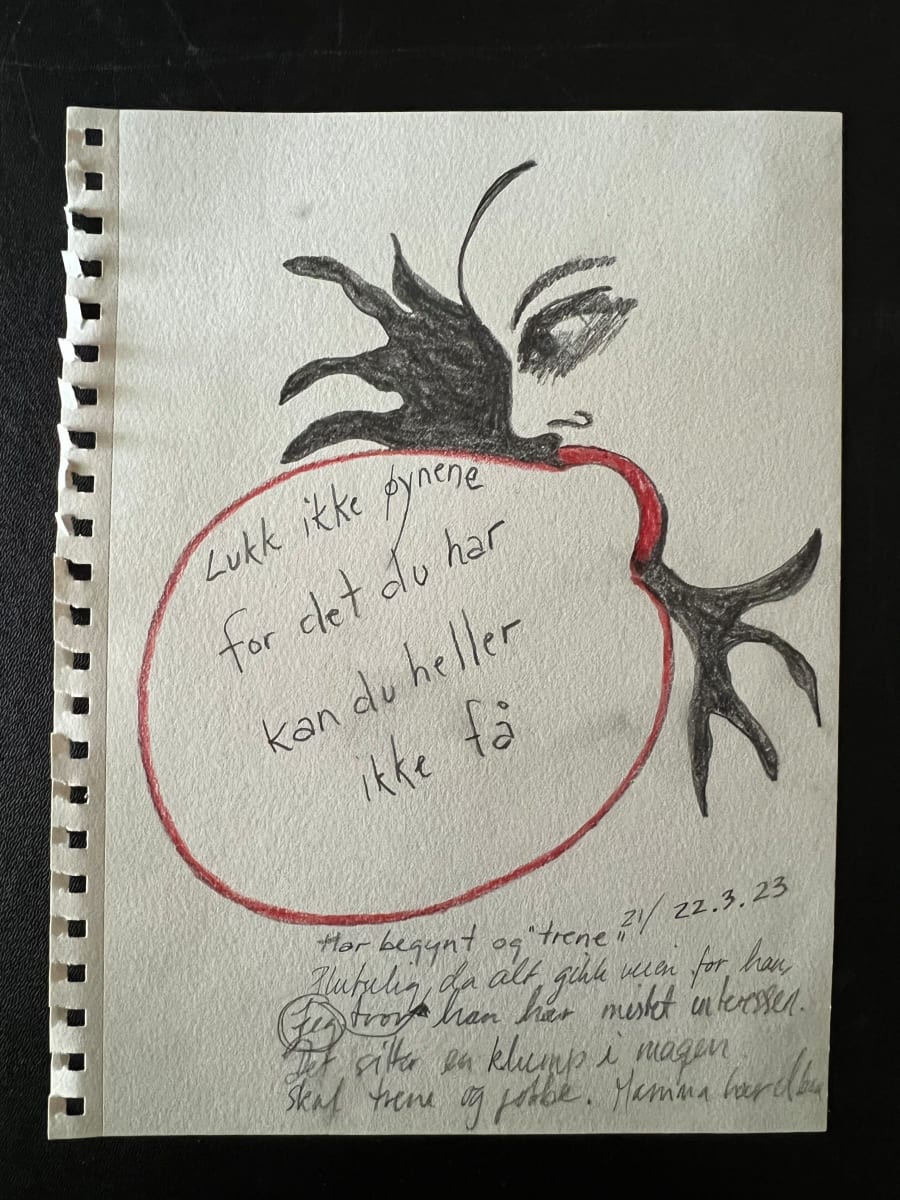 Lukk ikke øynene
for det du har
kan du heller
ikke få
21/22.3.23
Har begynt og "trene".
da alt gikk veien for han,
jeg tror han har mistet interessen.
Det sitter en klump i magen
skal trene og jobbe. Mamma har